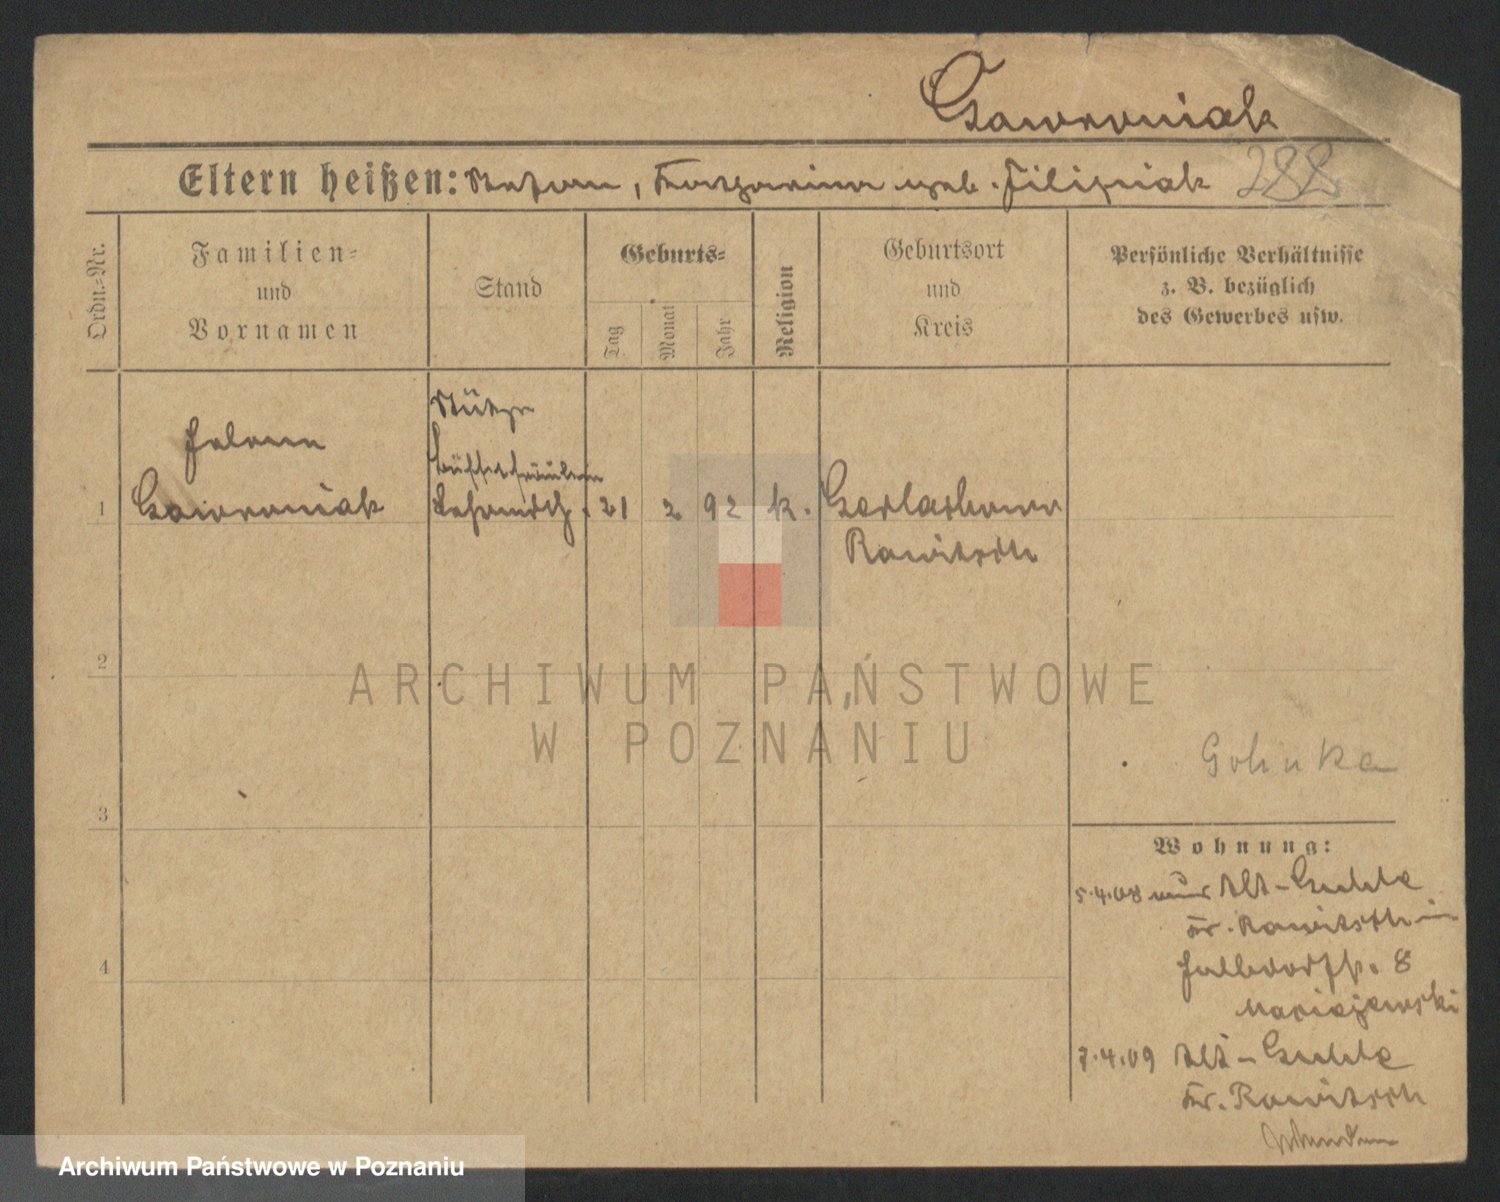 Gawroniak
Eltern heißen: Stefan, Katharina geb. Filipiak 288
Ordn.-Nr.
Familien-
und
Vornamen
Stand
Geburts-
Tag
Monat
Jahr
Religion
Geburtsort
und
Kreis
Persönliche Verhältnisse
z. B. bezüglich
des Gewerbes usw.
Stütze
Helene
Büffetfräulein
1 Gawroniak 21 2 92 k. Gerlachowo
Rawitsch
2
ARCHIWUM PAŃSTWOWE
W POZNANIU
3
Wohnung:
5.4.08 Alt-Guhle
Kr. Rawitsch in
Halbdorfstr. 8
Maciejewski
4
7.4.09 Alt-Guhle
Kr. Rawitsch
Archiwum Państwowe w Poznaniu